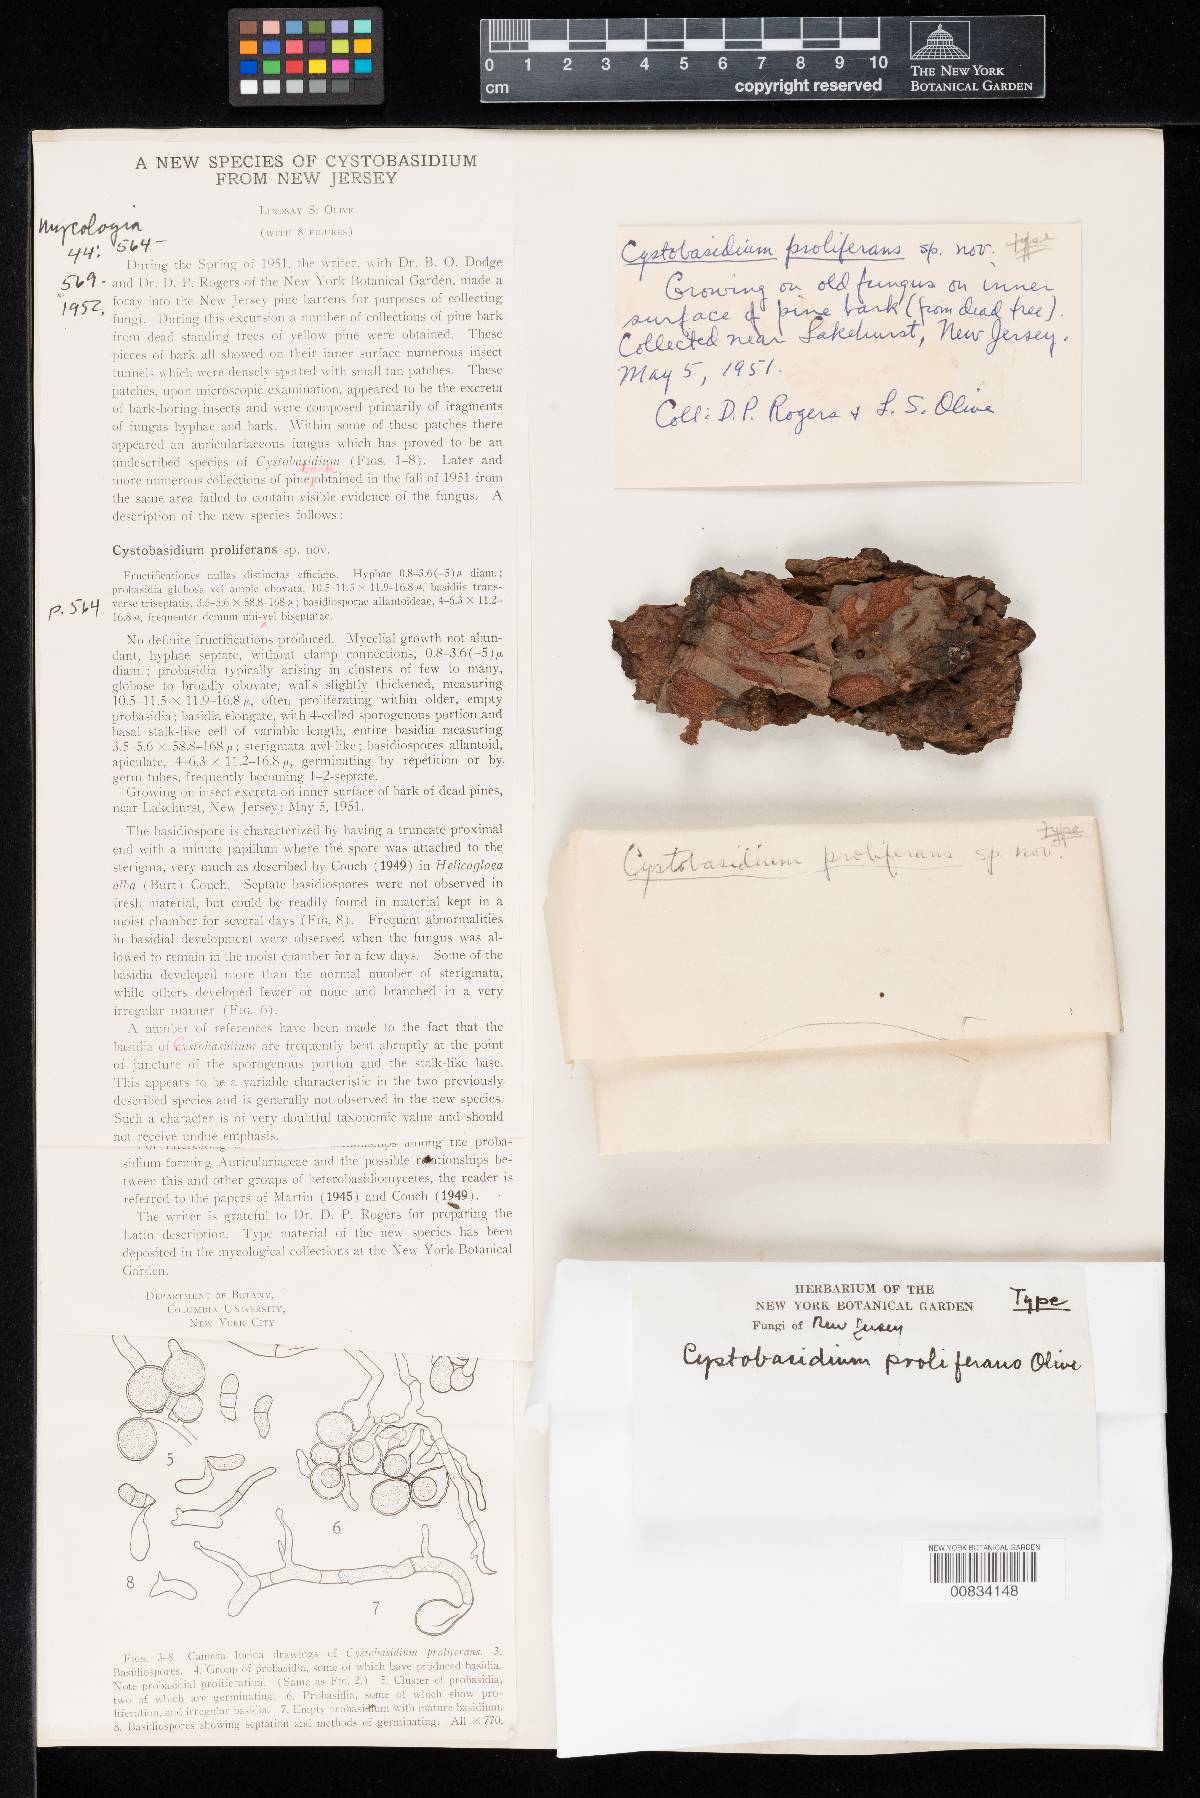 0 1 2 3 4 5 6 7 8 9 10
cm
copyright reserved
THE NEW YORK
BOTANICAL GARDEN
A NEW SPECIES OF CYSTOBASIDIUM
FROM NEW JERSEY
LINDSAY S. OLIVE
(WITH 8 FIGURES)
Mycologia
44: 564-
569.
1952.
During the Spring of 1951, the writer, with Dr. B. O. Dodge
and Dr. D. P. Rogers of the New York Botanical Garden, made a
foray into the New Jersey pine barrens for purposes of collecting
fungi. During this excursion a number of collections of pine bark
from dead standing trees of yellow pine were obtained. These
pieces of bark all showed on their inner surface numerous insect
tunnels which were densely spotted with small tan patches. These
patches, upon microscopic examination, appeared to be the excreta
of bark-boring insects and were composed primarily of fragments
of fungus hyphae and bark. Within some of these patches there
appeared an auriculariaceous fungus which has proved to be an
undescribed species of Cystobasidium (FIGS. 1–8). Later and
bark
more numerous collections of pine obtained in the fall of 1951 from
the same area failed to contain visible evidence of the fungus. A
description of the new species follows:
Cystobasidium proliferans sp. nov.
p. 564
Fructificationes nullas distinctas efficiens. Hyphae 0.8–3.6(–5) μ diam.;
probasidia globosa vel ample obovata, 10.5–11.5 × 11.9–16.8 μ, basidiis trans-
verse triseptatis, 3.5–5.6 × 58.8–168 μ; basidiosporae allantoideae, 4–6.3 × 11.2–
16.8 μ, frequenter demum uni-vel biseptatae.
No definite fructifications produced. Mycelial growth not abun-
dant, hyphae septate, without clamp connections, 0.8–3.6(–5) μ
diam.; probasidia typically arising in clusters of few to many,
globose to broadly obovate, walls slightly thickened, measuring
10.5–11.5 × 11.9–16.8 μ, often proliferating within older, empty
probasidia; basidia elongate, with 4-celled sporogenous portion and
basal stalk-like cell of variable length, entire basidia measuring
3.5–5.6 × 58.8–168 μ; sterigmata awl-like; basidiospores allantoid,
apiculate, 4–6.3 × 11.2–16.8 μ, germinating by repetition or by
germ tubes, frequently becoming 1–2-septate.
Growing on insect excreta on inner surface of bark of dead pines,
near Lakehurst, New Jersey; May 5, 1951.
The basidiospore is characterized by having a truncate proximal
end with a minute papillum where the spore was attached to the
sterigma, very much as described by Couch (1949) in Helicogloea
alba (Burt) Couch. Septate basidiospores were not observed in
fresh material, but could be readily found in material kept in a
moist chamber for several days (FIG. 8). Frequent abnormalities
in basidial development were observed when the fungus was al-
lowed to remain in the moist chamber for a few days. Some of the
basidia developed more than the normal number of sterigmata,
while others developed fewer or none and branched in a very
irregular manner (FIG. 6).
A number of references have been made to the fact that the
basidia of Cystobasidium are frequently bent abruptly at the point
of juncture of the sporogenous portion and the stalk-like base.
This appears to be a variable characteristic in the two previously
described species and is generally not observed in the new species.
Such a character is of very doubtful taxonomic value and should
not receive undue emphasis.
among the proba-
sidium forming Auriculariaceae and the possible relationships be-
tween this and other groups of heterobasidiomycetes, the reader is
referred to the papers of Martin (1945) and Couch (1949).
The writer is grateful to Dr. D. P. Rogers for preparing the
Latin description. Type material of the new species has been
deposited in the mycological collections at the New York Botanical
Garden.
DEPARTMENT OF BOTANY,
COLUMBIA UNIVERSITY,
NEW YORK CITY
5
6
8
7
FIGS. 3–8. Camera lucida drawings of Cystobasidium proliferans. 3.
Basidiospores. 4. Group of probasidia, some of which have produced basidia.
Note probasidial proliferation. (Same as FIG. 2.) 5. Cluster of probasidia,
two of which are germinating. 6. Probasidia, some of which show pro-
liferation, and irregular basidia. 7. Empty probasidium with mature basidium.
8. Basidiospores showing septation and methods of germinating. All × 770.
Cystobasidium proliferans sp. nov. type
Growing on old fungus on inner
surface of pine bark (from dead tree).
Collected near Lakehurst, New Jersey.
May 5, 1951.
Coll: D. P. Rogers & L. S. Olive
type
Cystobasidium proliferans sp. nov.
HERBARIUM OF THE
NEW YORK BOTANICAL GARDEN
Type
Fungi of New Jersey
Cystobasidium proliferans Olive
NEW YORK BOTANICAL GARDEN
00834148